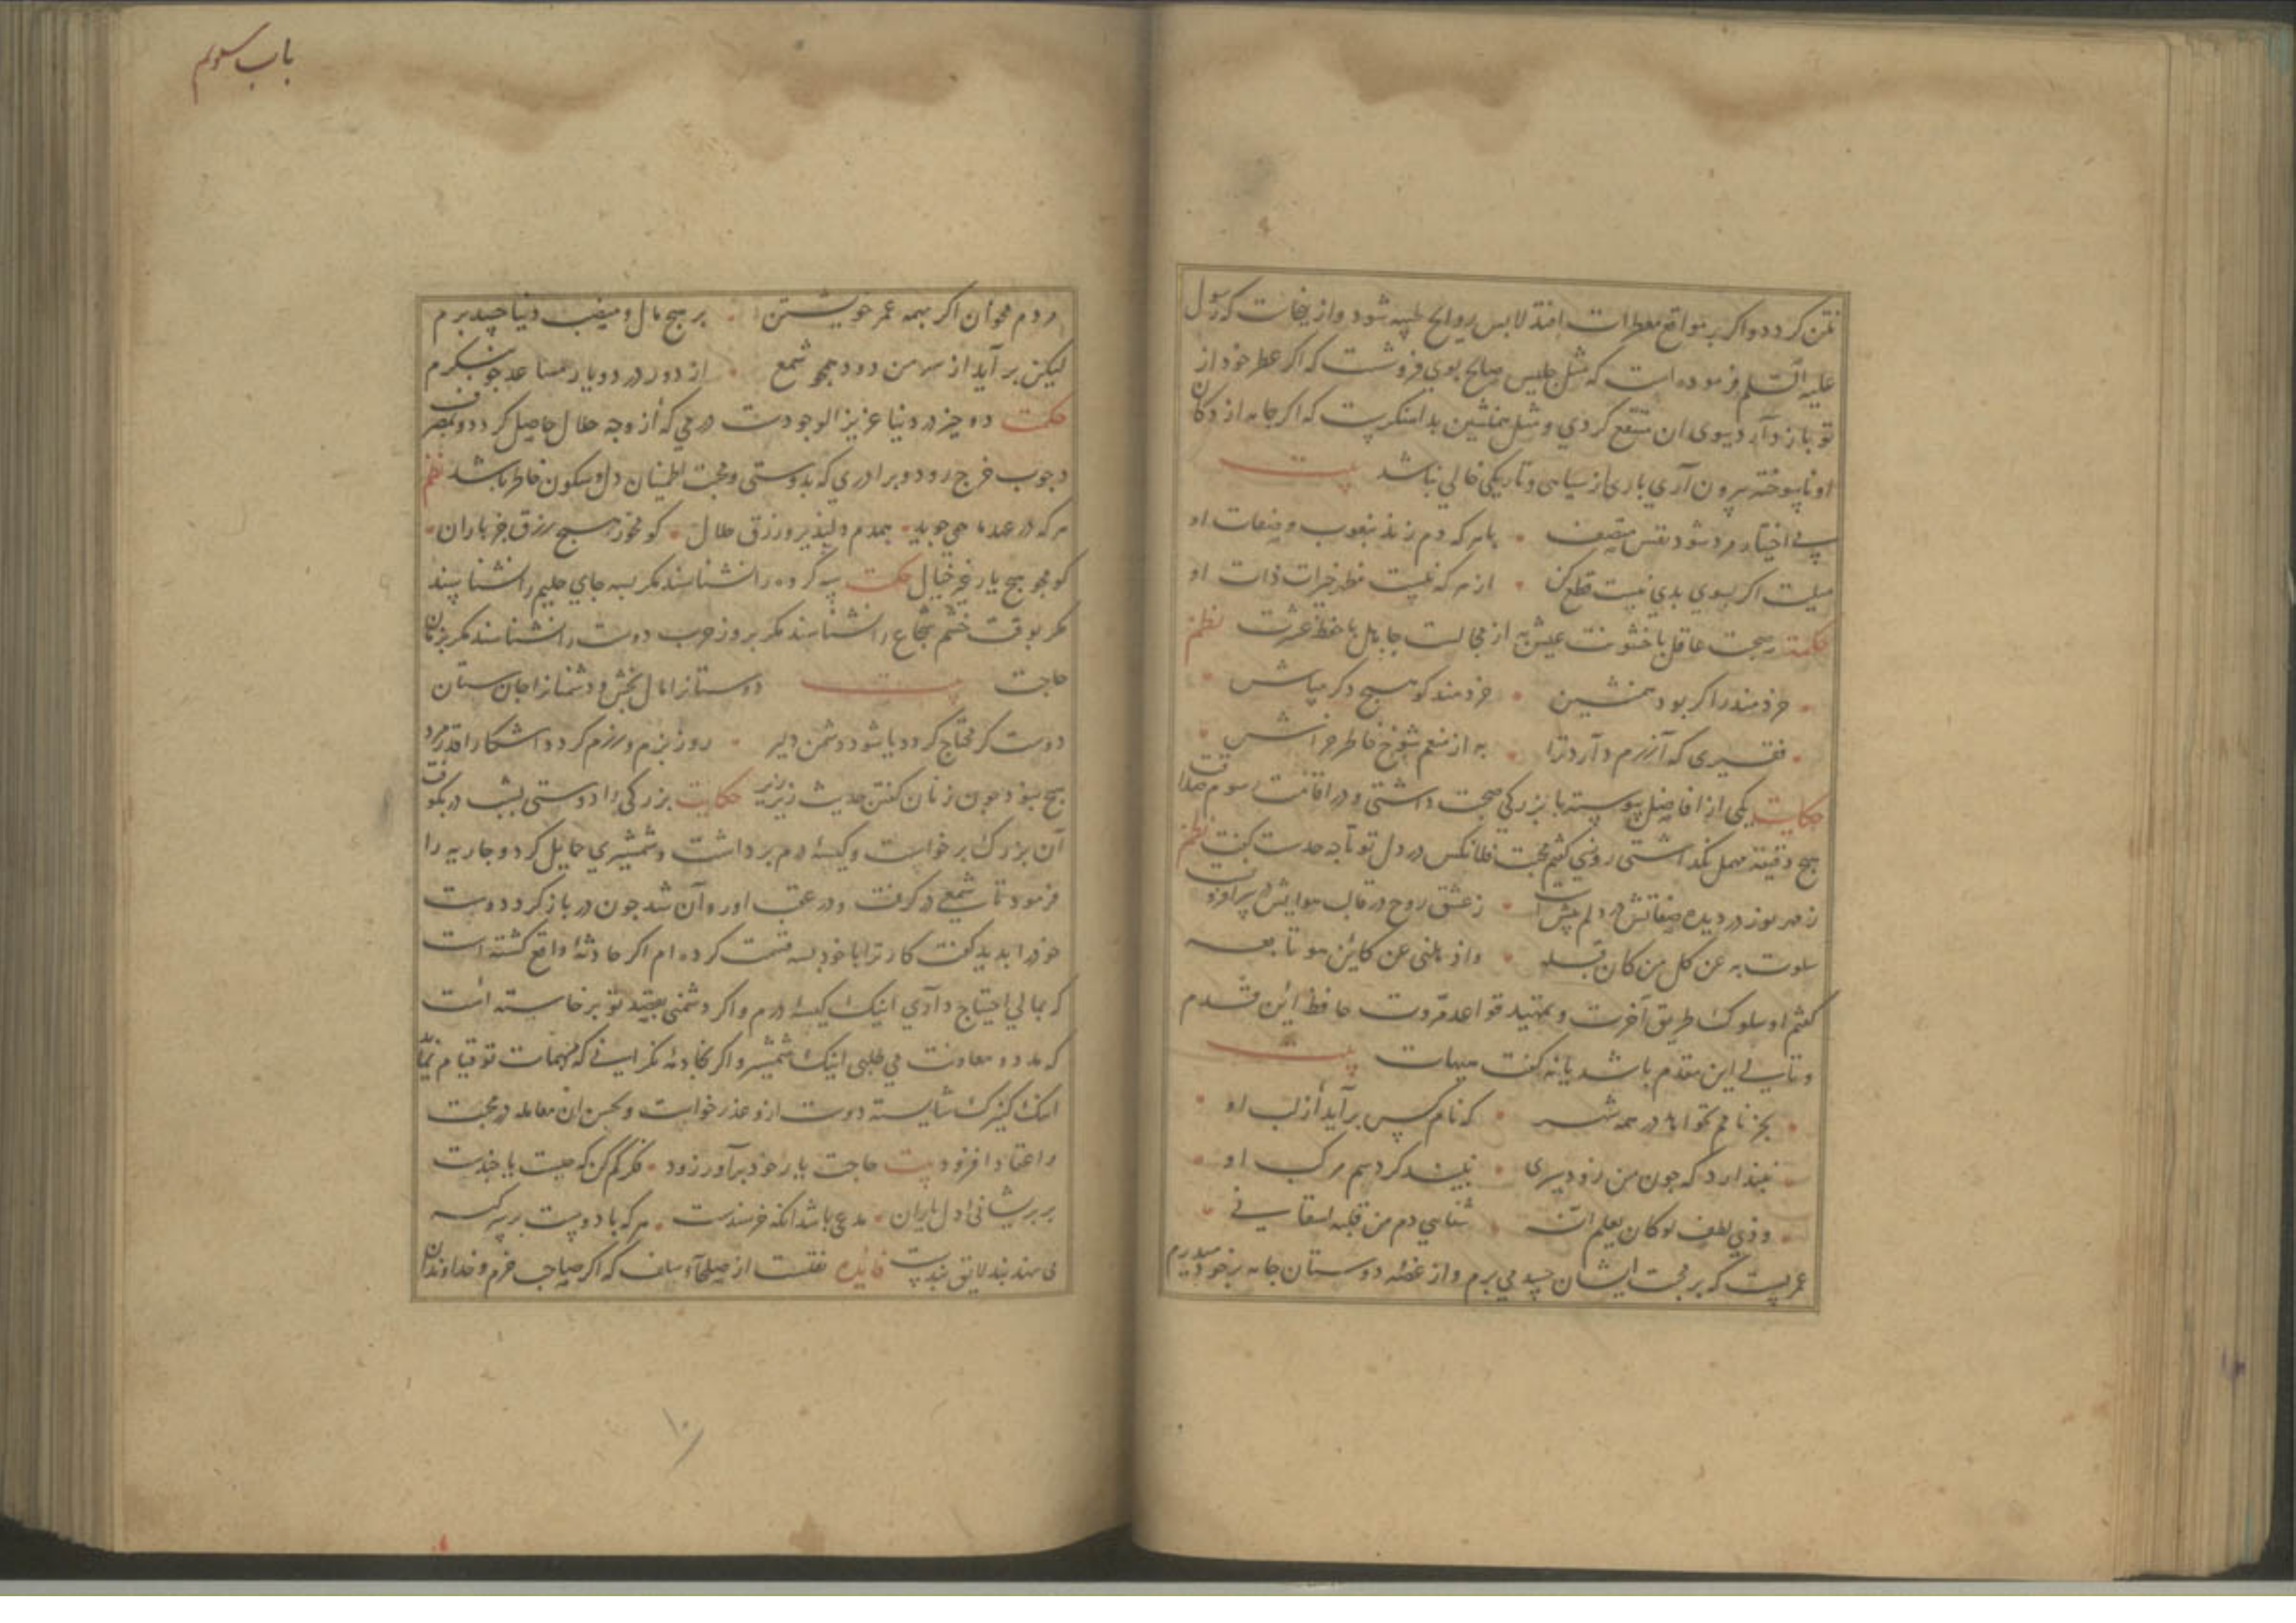 نتن کردد واکر بر مواقع معطرات افتد لابس روایح طیبه شود و از ینجاست که رسول
علیه السلم فرموده است که مثل جلیس صالح بوی فروشت که اکر عطر خود از
تو باز دارد ببوی ان منتفع کردی و مثل همنشین بد اهنکریت که اکر جامه از دکان
او ناسوخته بیرون آری باری از سیاهی و تاریکی خالی نباشد بیت
بی اختیار مرد شود نفس متصف بهر که دم زند بنعوت و صفات او
میلت اکر بسوی بدی نیست قطع کن از هر که نیست مظهر خیرات ذات او
حکمة صحبت عاقل با خشونت عیش به از مجالست جاهل با حفظ عزت نظم
خردمند را کر بود همنشین خردمند کو هیچ دکر مباش
فقیری که آزرم دارد ترا به از منعم شوخ خاطر خراش
حکایت یکی از افاضل پیوسته با بزرکی صحبت داشتی و در اقامت رسوم صداقت
هیج دقیقه مهمل نکذاشتی روزی کفتم محبت فلانکس در دل تو تا جه حدست کفت نظم
ز مهر نور در دیده صفاتش در دلم بیش است ز عشق روح در قالب هوایش
سلوت به عن کل من کان قبله واذهلنی عن کاین هو تابعه
کفتم او سلوک طریق آخرت و بتمهید قواعد مروت حافظ این قدم
و تالی این مقدم باشد یا نه کفت هیهات بیت
بجز نامم نخواهد در همه شهر که نام کس برآید از لب او
نپندارد که جون من زو دیری نبیند کردسم مرکب او
وذی لطف لو کان یعلم انه
عمریست که بر محبت ایشان حسد می برم و از غصه دوستان جامه بر خود میدرم
باب سوم
مردم مخوان اکر همه عمر خویشتن بر هیج مال و منصب دنیا حسد برم
لیکن بر آید از سر من دود همجو شمع از دور در دو یار مساعد جو بنکرم
حکمت دو چیز در دنیا عزیز الوجودست درمی که از وجه حلال حاصل کردد و بمصرف
وجوب خرج رود و برادری که بدوستی و محبت اطمینان دل و سکون خاطر باشد نظم
هر که در عهد ما همی جوید همدم دلپذیر و رزق حلال کو مخور هیچ رزق جز باران
کو مجو هیج یار غیر خیال حکمت سه کروه را نشناسند مکر بسه جای حلیم را نشناسند
مکر بوقت خشم شجاع را نشناسند مکر بروز حرب دوست را نشناسند مکر بزمان
حاجت بیت دوستانرا مال بخش و دشمنانرا جان ستان
دوست کر محتاج کردد یا شود دشمن دلیر روز بزم و رزم کردد اشکارا قدر مرد
هیج نبود جون زنان کفتن حدیث زیر زیر حکایت بزرکی را دوستی بشب در بکوفت
آن بزرک برخواست و کیسه درم برداشت و شمشیری حمایل کرد و جاریه را
فرمود تا شمعی در کرفت و در عقب او روان شد جون در باز کرد و دوست
خود را بدید کفت کار ترا با خود بسه قسمت کرده ام اکر حادثه واقع کشته است
که بمالی احتیاج داری اینک کیسه درم و اکر دشمنی بقصد تو برخاسته است
که مدد و معاونت می طلبی اینک شمشیر و اکر کاد که بمهمات تو قیام نماید
اینک کنیزک شایسته دوست ازو عذر خواست و بحسن ان معامله در محبت
و اعتماد افزود بیت حاجت یار خود برآور زود فکر کم کن که جیست یا جندست
بر پریشانی دل یاران مدعی باشد انکه خرسندست هر که با دوست بر سر کیسه
می نهد بند لایق بندست فایده نقلست از صلحاء سلف که اکر صاحب خرم و خداوندان
۱۰